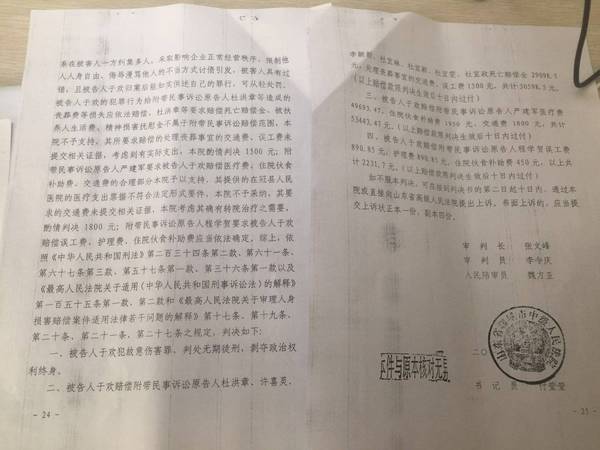 系在被害人一方纠集多人,采取影响企业正常经营秩序、限制他
人人身自由、侮辱谩骂他人的不当方式讨债引发,被害人具有过
错,且被告人于欢归案后能如实供述自己的罪行,可从轻处罚。
被告人于欢的犯罪行为给附带民事诉讼原告人杜洪章等造成的
丧葬费等损失应依法赔偿,杜洪章等要求赔偿死亡赔偿金、被扶
养人生活费、精神损害抚慰金不属于附带民事诉讼赔偿范围,本
院不予支持,其所要求赔偿的处理丧葬事宜的交通费、误工费未
提交相关证据,考虑到有实际支出,本院酌情判决 1500 元;附
带民事诉讼原告人严建军要求被告人于欢赔偿医疗费、住院伙食
补助费、交通费的合理部分本院予以支持,其提供的在冠县人民
医院的医疗支出票据不符合法定形式要件,本院不予采纳,其要
求的交通费未提交相关证据,本院考虑其确有转院治疗之需要,
酌情判决 1800 元;附带民事诉讼原告人程学贺要求被告人于欢
赔偿误工费、护理费、住院伙食补助费应当依法确定。综上,依
照《中华人民共和国刑法》第二百三十四条第二款、第六十一条、
第六十七条第三款、第五十七条第一款、第三十六条第一款以及
《最高人民法院关于适用〈中华人民共和国刑事诉讼法〉的解释》
第一百五十五条第一款、第二款和《最高人民法院关于审理人身
损害赔偿案件适用法律若干问题的解释》第十七条、第十九条、
第二十条、第二十一条、第二十七条之规定,判决如下:
一、被告人于欢犯故意伤害罪,判处无期徒刑,剥夺政治权
利终身。
二、被告人于欢赔偿附带民事诉讼原告人杜洪章、许喜灵、
- 24 -
处理丧葬事宜的交通费、误工费 1500 元,共计 30598.5 元。
(以上赔偿款限判决生效后十日内过付)
三、被告人于欢赔偿附带民事诉讼原告人严建军医疗费
49693.47、住院伙食补助费 1950 元、交通费 1800 元,共计
53443.47 元。(以上赔偿款限判决生效后十日内过付)
四、被告人于欢赔偿附带民事诉讼原告人程学贺误工费
890.85、护理费 890.85、住院伙食补助费 450 元,以上共
计 2231.7 元。(以上赔偿款限判决生效后十日内过付)
如不服本判决,可在接到判决书的第二日起十日内,通过本
院或直接向山东省高级人民法院提出上诉。书面上诉的,应当提
交上诉状正本一份,副本四份。
审 判 长 张文峰
审 判 员 李令庆
人民陪审员 魏方圣
山东省聊城市中级人民法院
二〇
本件与原本核对无异
书 记 员
- 25 -